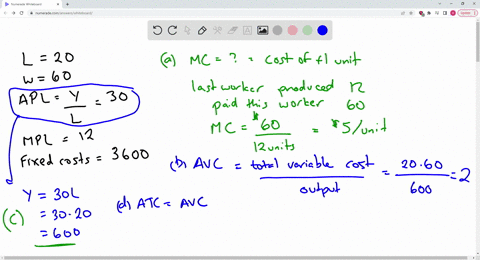 Numerade Whiteboard
numerade.com/answers/whiteboard
L = 20
w = 60
APL = Y/L = 30
MPL = 12
Fixed costs = 3600
Y = 30L
(c) = 30·20
= 600
(a) MC = ? = cost of +1 unit
last worker produced 12
paid this worker 60
MC = $60/12 units = $5/unit
(b) AVC = total variable cost/output = 20·60/600 = 2
(d) ATC = AVC